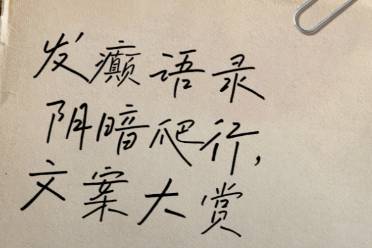 发癫语录
阴暗爬行，
文案大赏